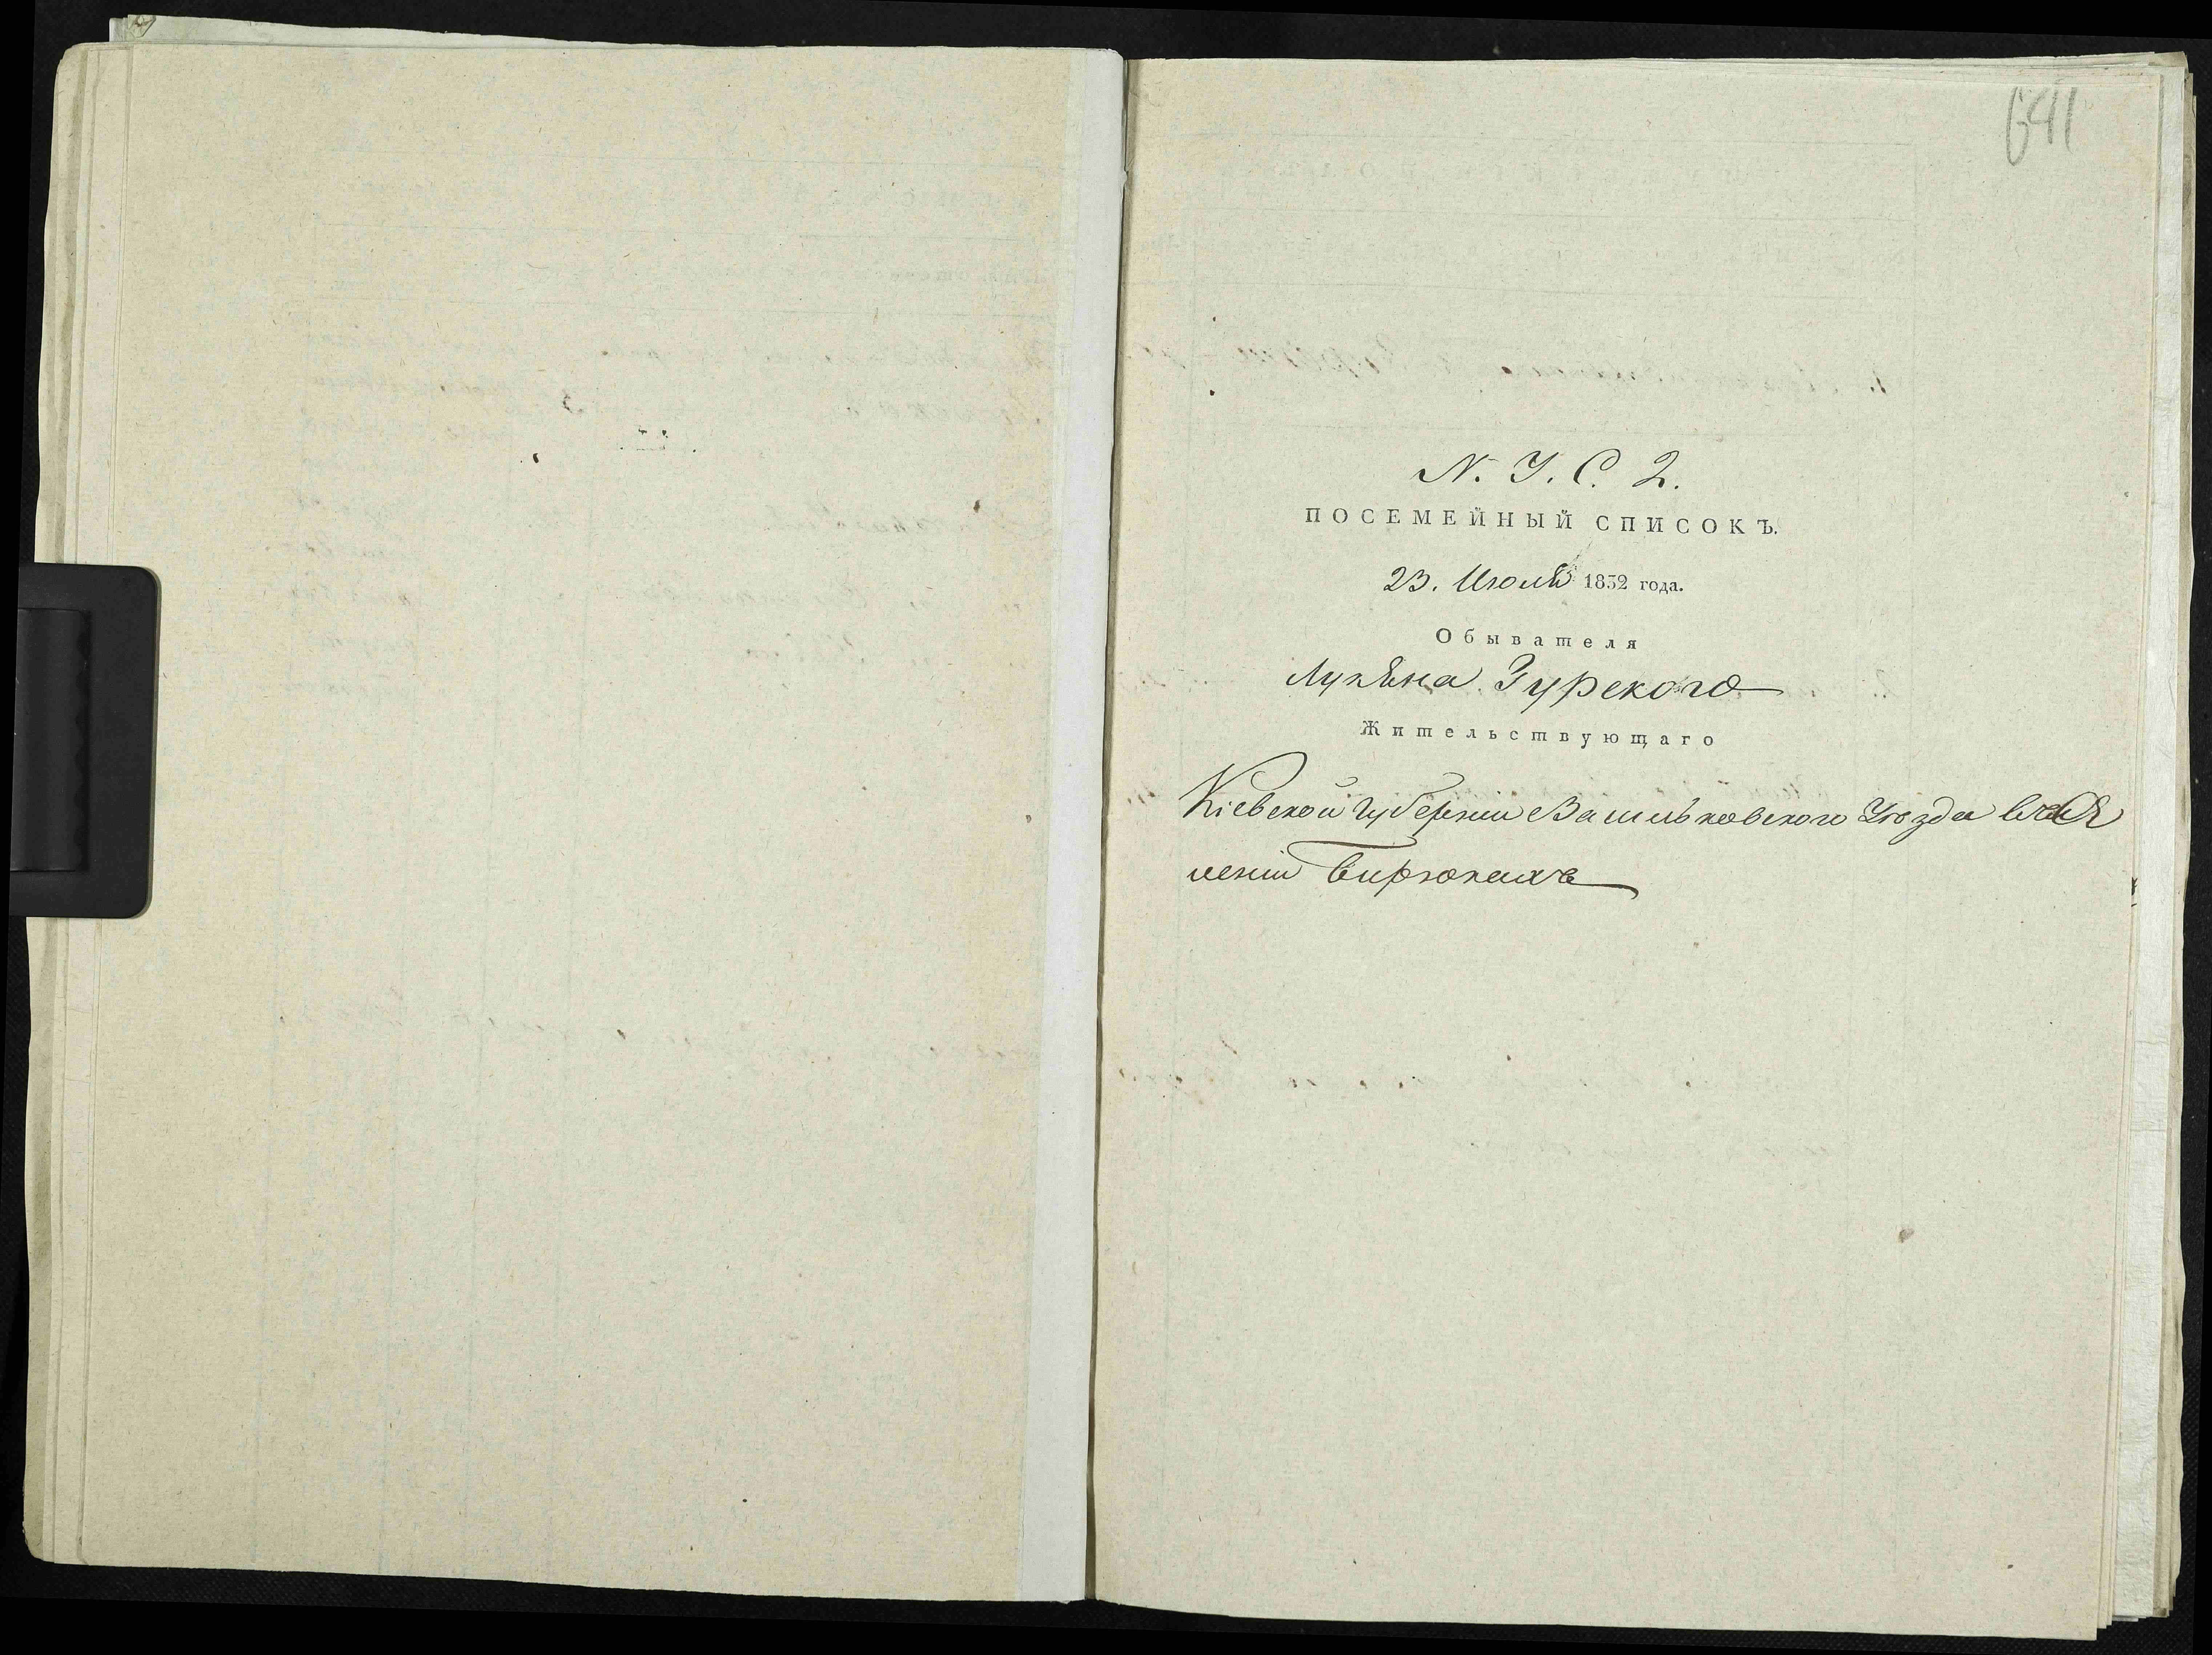 641
N. У. С. 2.
ПОСЕМЕЙНЫЙ СПИСОКЪ.
23. Июля 1832 года.
Обывателя
Лукяна Гурского
Жительствующаго
Кіевской Губерніи Васильковского Уѣзда
Бирюкахъ